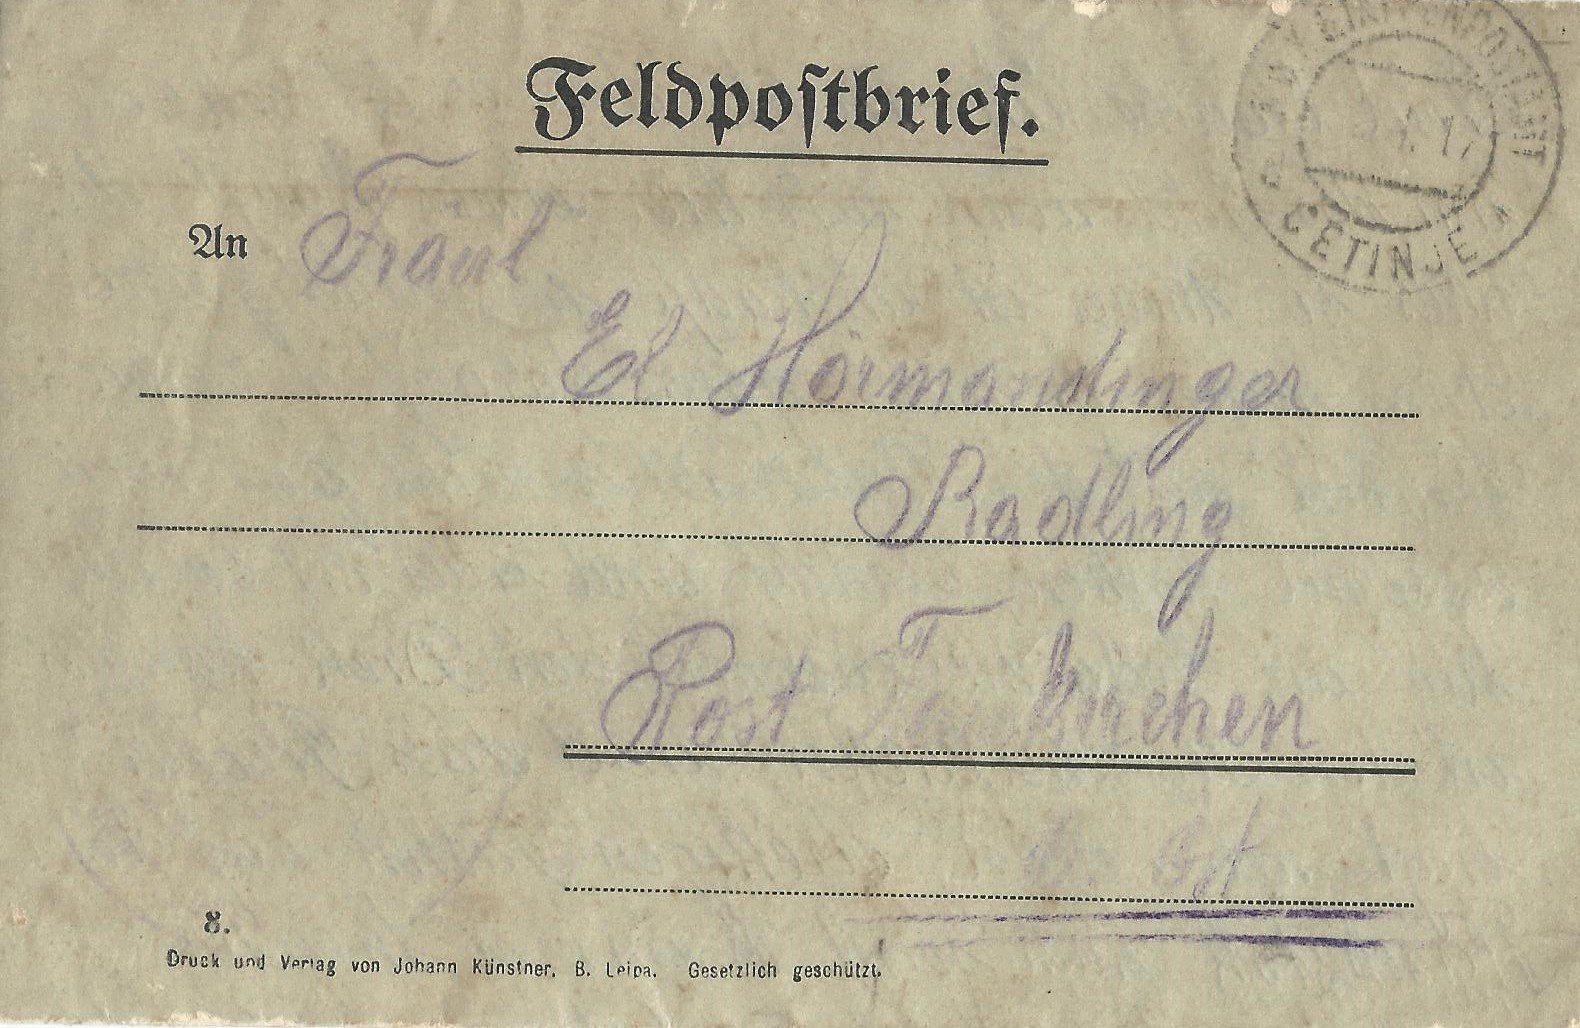 Feldpostbrief.
K. U. K. ETAPPENPOSTAMT
17
CETINJE
An Fräul
El Hörmandinger
Radling
Post Taufkirchen
O. Öst
8.
Druck und Verlag von Johann Künstner, B. Leipa. Gesetzlich geschützt.